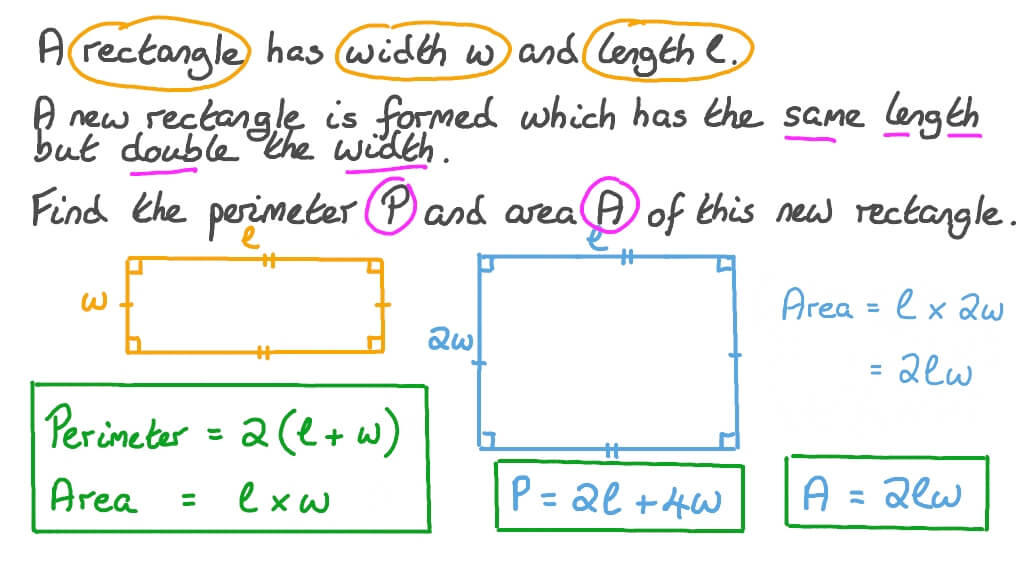 A rectangle has width w and length l.
A new rectangle is formed which has the same length
but double the width.
Find the perimeter P and area A of this new rectangle.
l
w
l
2w
Area = l × 2w
= 2lw
Perimeter = 2(l + w)
Area = l × w
P = 2l + 4w
A = 2lw